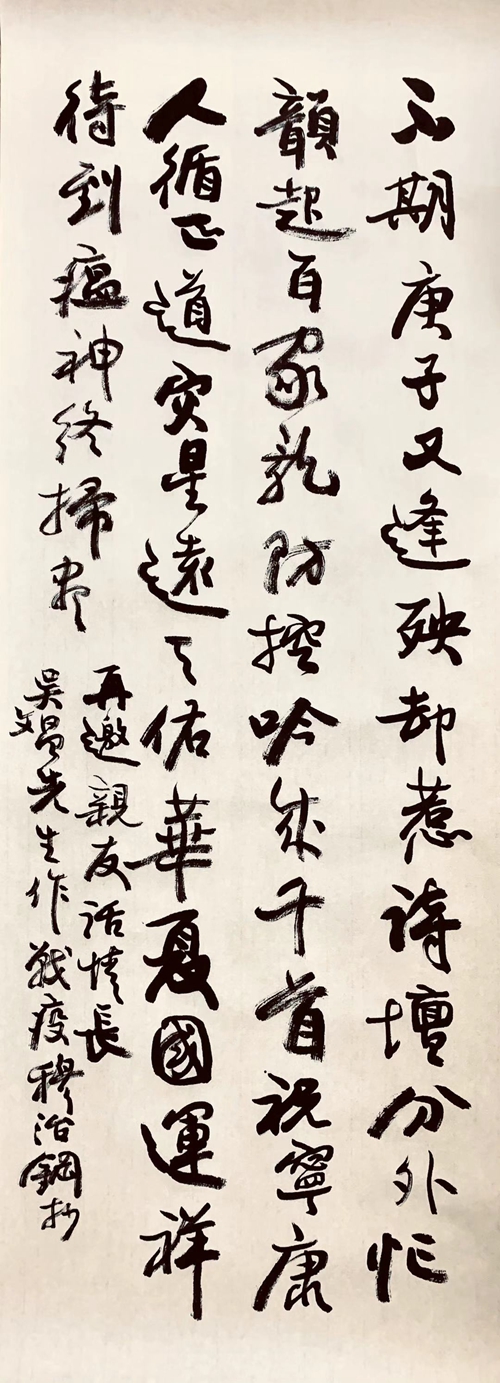 不期庚子又逢殃却惹诗壇分外忙
韻起百家歌防控吟成千首祝寧康
人循正道灾星遠天佑華夏國運祥
待到瘟神終掃尽
再邀親友话情長
吴文昌先生作战疫穆治鋼抄